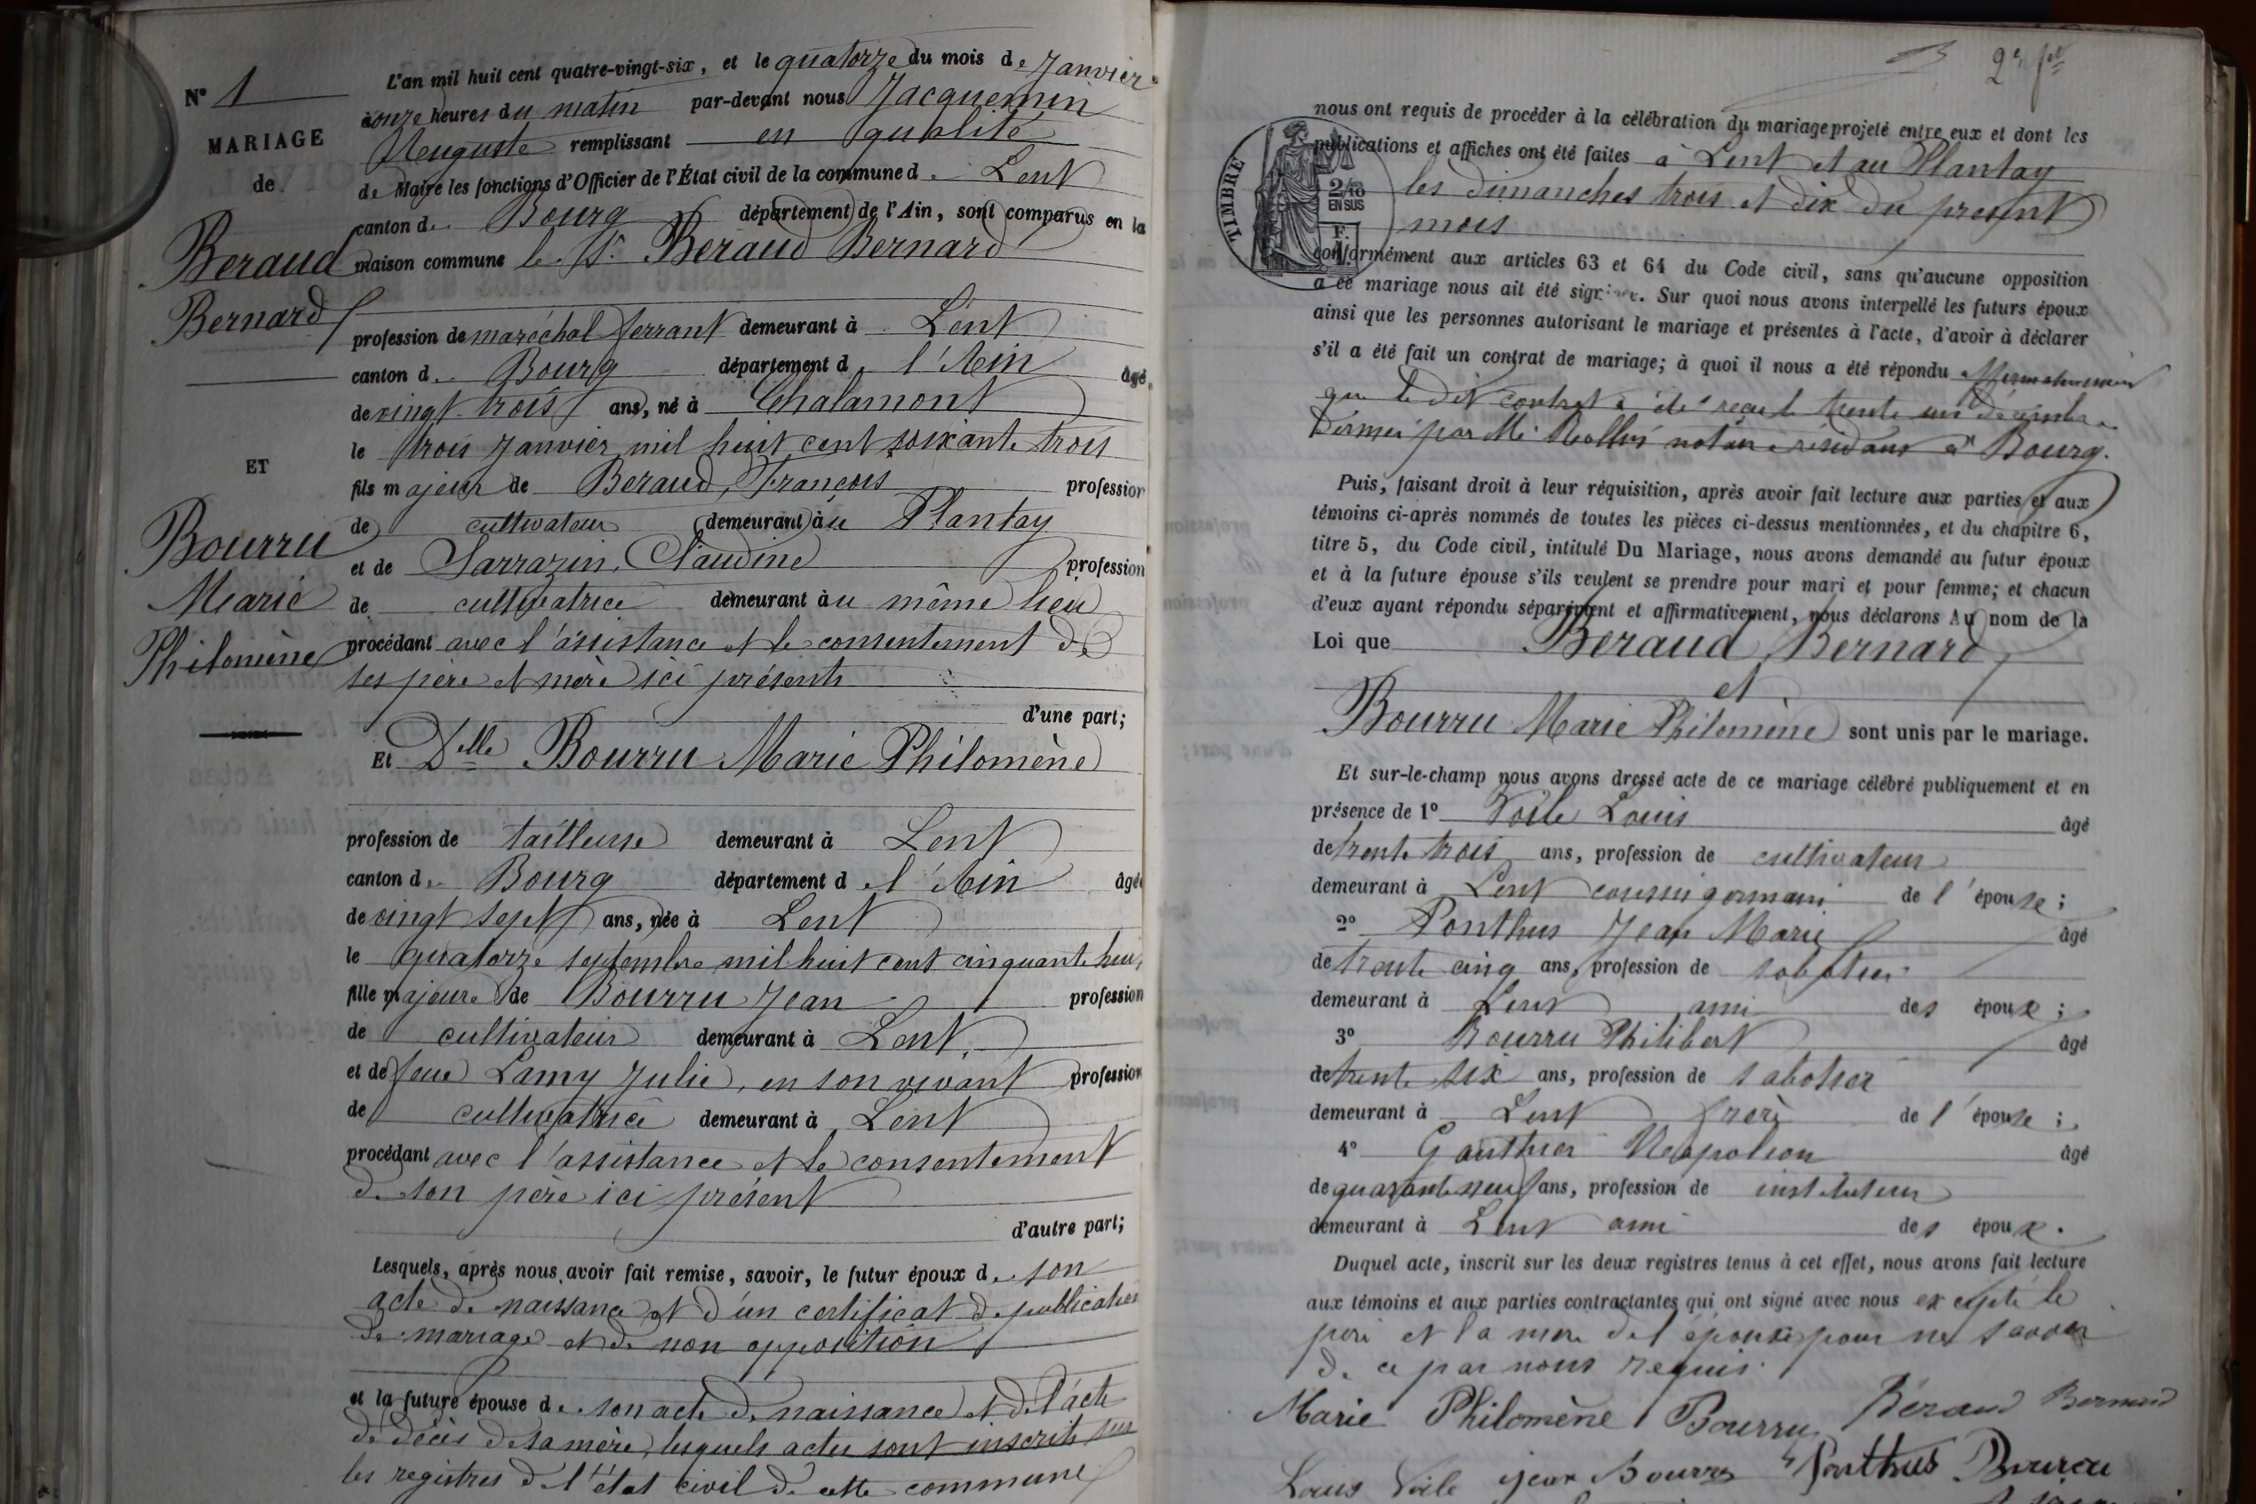 N° 1
MARIAGE
de
Beraud
Bernard
ET
Bourru
Marie
Philomène
L'an mil huit cent quatre-vingt-six, et le quatorze du mois de Janvier
à onze heures du matin par-devant nous Jacquemin
Auguste remplissant en qualité
de Maire les fonctions d'Officier de l'État civil de la commune de Lent
canton de Bourg département de l'Ain, sont comparus en la
maison commune le Sr. Beraud Bernard
profession de maréchal ferrant demeurant à Lent
canton de Bourg département de l'Ain âgé
de vingt trois ans, né à Chalamont
le trois Janvier mil huit cent soixante trois
fils majeur de Beraud, François profession
de cultivateur demeurant au Plantay
et de Sarrazin, Claudine profession
de cultivatrice demeurant au même lieu
procédant avec l'assistance et le consentement de
ses père et mère ici présents
d'une part;
Et Delle Bourru Marie Philomène
profession de tailleuse demeurant à Lent
canton de Bourg département de l'Ain âgée
de vingt sept ans, née à Lent
le quatorze septembre mil huit cent cinquante huit
fille majeure de Bourru Jean profession
de cultivateur demeurant à Lent,
et de feue Lamy Julie, en son vivant profession
de cultivatrice demeurant à Lent
procédant avec l'assistance et le consentement
de son père ici présent
d'autre part;
Lesquels, après nous avoir fait remise, savoir, le futur époux de son
acte de naissance et d'un certificat de publication
de mariage et de non opposition
et la future épouse de son acte de naissance et de l'acte
de décès de sa mère, lesquels actes sont inscrits sur
les registres de l'état civil de cette commune
2e ft
TIMBRE
2/10
EN SUS
nous ont requis de procéder à la célébration du mariage projeté entre eux et dont les
publications et affiches ont été faites à Lent et au Plantay
les dimanches trois et dix du présent
mois
conformément aux articles 63 et 64 du Code civil, sans qu'aucune opposition
à ce mariage nous ait été signifiée. Sur quoi nous avons interpellé les futurs époux
ainsi que les personnes autorisant le mariage et présentes à l'acte, d'avoir à déclarer
s'il a été fait un contrat de mariage; à quoi il nous a été répondu affirmativement
que le dit contrat a été reçu le trente un décembre
dernier par Me notaire résidant à Bourg.
Puis, faisant droit à leur réquisition, après avoir fait lecture aux parties et aux
témoins ci-après nommés de toutes les pièces ci-dessus mentionnées, et du chapitre 6,
titre 5, du Code civil, intitulé Du Mariage, nous avons demandé au futur époux
et à la future épouse s'ils veulent se prendre pour mari et pour femme; et chacun
d'eux ayant répondu séparément et affirmativement, nous déclarons Au nom de la
Loi que Beraud Bernard
et
Bourru Marie Philomène sont unis par le mariage.
Et sur-le-champ nous avons dressé acte de ce mariage célébré publiquement et en
présence de 1° Voile Louis âgé
de trente trois ans, profession de cultivateur
demeurant à Lent cousin germain de l'épouse;
2° Ponthus Jean Marie âgé
de trente cinq ans, profession de sabotier
demeurant à Lent ami des époux;
3° Bourru Philibert âgé
de trente six ans, profession de sabotier
demeurant à Lent frère de l'épouse;
4° Gauthier Napoléon âgé
de quarante neuf ans, profession de instituteur
demeurant à Lent ami des époux.
Duquel acte, inscrit sur les deux registres tenus à cet effet, nous avons fait lecture
aux témoins et aux parties contractantes qui ont signé avec nous excepté le
père et la mère de l'époux pour ne savoir
de ce par nous requis.
Marie Philomène Bourru Béraud Bernard
Louis Voile Jean Bourru Ponthus Bourru